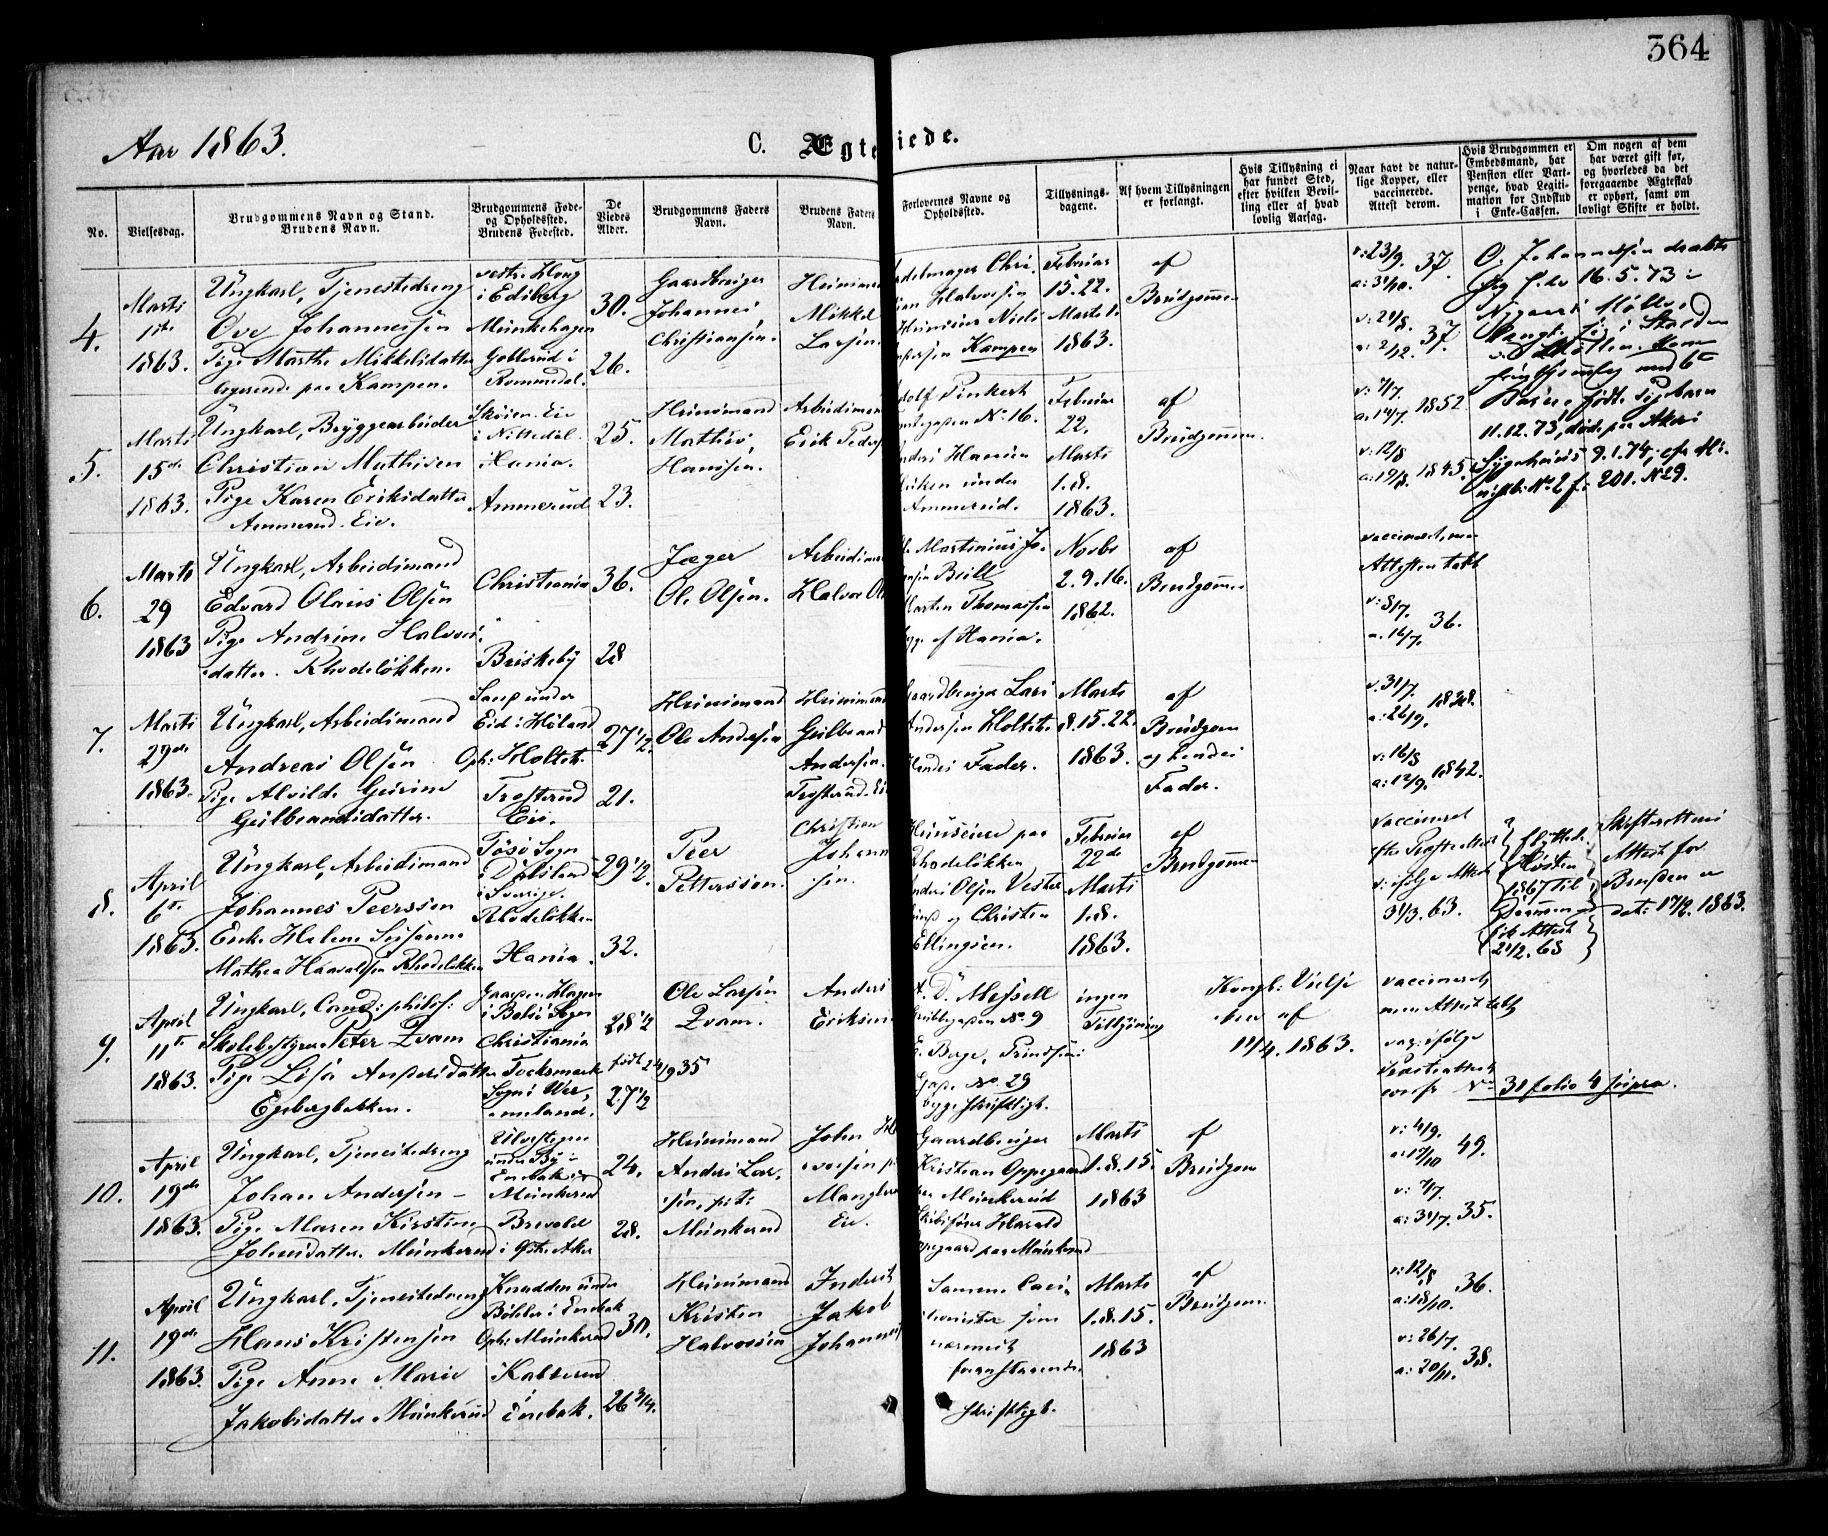 364
Aar 1863.
C. Ægteviede.
No.
Vielsesdag.
Brudgommens Navn og Stand.
Brudens Navn.
Brudgommens Føde-
og Opholdssted.
Brudens Fødested.
De
Viedes
Alder.
Brudgommens Faders
Navn.
Brudens Faders
Navn.
Forlovernes Navne og
Opholdssted.
Tillysnings-
dagene.
Af hvem Tillysningen
er forlangt.
Hvis Tillysning ei
har fundet Sted,
efter hvilken Bevil-
ling eller af hvad
lovlig Aarsag.
Naar havt de natur-
lige Kopper, eller
vaccinerede.
Attest derom.
Hvis Brudgommen er
Embedsmand, har
Pension eller Vart-
penge, hvad Legiti-
mation for Indskud
i Enke-Cassen.
Om nogen af dem
har været gift før,
og hvorledes da det
foregaaende Ægteskab
er ophørt, samt om
lovligt Skifte er holdt.
4.
Marts
1ste
1863.
Ungkarl, Tjenestedreng
Ove Johannessen
Pige Marthe Mikkelsdatter
logerende paa Kampen.
vestre Houg
i Edsberg
Munkehagen
Goblerud i
Rommedal.
30.
26.
Gaardbruger
Johannes
Christiansen.
Huusmand
Mikkel
Larsen.
Halvorsen
Niels
Kampen
Februar
15. 22.
Marts 1.
1863.
af
Brudgommen
v: 23/9. 37.
a: 31/10.
v: 21/8. 37.
a: 2/12.
O. Johannesen
16. 5. 73 i
5.
Marts
15de
1863.
Ungkarl, Bryggearbeider
Christian Mathisen
Pige Karen Eriksdatter
Ammerud-Eie.
Skøien-Eie
i Nittedal.
Xania.
Ammerud
25.
23.
Huusmand
Mathis
Hansen.
Arbeidsmand
Erik Peders
Pinkert
No 16.
Hansen
under
Ammerud.
Februar
22.
Marts
1.8.
1863.
af
Brudgommen.
v: 7/7. 1852
a: 14/7.
v: 12/8
a: 19/8. 1845.
11.12.73, døde paa Akers
Sygehuus 9.1.74, cfr Mi-
nistb: No 2 f: 201. No 29.
6.
Marts
29
1863
Ungkarl, Arbeidsmand
Edvard Olaus Olsen
Pige Andrine Halvors-
datter. Rhodeløkken.
Christiania
Briskeby
36.
28
Jæger
Ole Olsen.
Arbeidsmand
Halvor Ol
Martinius Jo-
Brill
Morten Thomassen
af Xania.
Novbr
2. 9. 16.
1862.
af
Brudgommen
vaccineret, men
Attesten tabt
v: 8/7. 36.
a. 16/7.
7.
Marts
29de
1863.
Ungkarl, Arbeidsmand
Andreas Olsen
Pige Alvilde Gurine
Gulbrandsdatter.
under
Eid i Høland
Oph: Holtet.
Trosterud
Eie.
27 1/2.
21.
Huusmand
Ole Andersen
Huusmand
Gulbrand
Andersen.
Trosterud-Eie
Gaardbruger Lars
Andersen Holtet
Hendes Fader.
Marts
8. 15. 22.
1863.
af
Brudgom
og hendes
Fader.
v. 31/7. 1838.
a: 26/9.
v: 16/8
a: 12/9. 1842.
8.
April
6te
1863.
Ungkarl, Arbeidsmand
Johannes Peersson
Enke Helene Susanne
Mathea Haavaldsen Rhodeløkken
Tøsø Sogn
i Dalsland
i Sverige.
Rhodeløkken
Xania.
29 1/2.
32.
Peer
Pettersson.
Christian
Johann
sen.
Huuseier paa
Rhodeløkken
Anders Olsen Vester-
og Christen
Ellingsen.
Februar
22de
Marts
1.8.
1863.
af
Brudgommen
vaccineret
efter Præsteattest
v: ifølge Attest
31/3. 63.
flyttede
Høsten
1867 til
Attest
21/2. 68
Skifterettens
Attest for
Bruden er
dat: 17/2. 1863.
9.
April
11te
1863.
Ungkarl, Cand: philos:
Skolebestyrer Peter Qvam
Pige Lisa Andersdatter
Egebergbakken.
Gaarden Hagen
i Bolsø Sogn
Christiania
Tocksmark
Sogn i Wer-
emland.
28 1/2
født 24/9 35
27 1/2
Ole Larsen
Qvam.
Anders
Eriksen
D. Messell
No. 9
Berge, Prindsens
Gade No. 29
begge skriftligt.
ingen
Tillysning
Kongb: Vielse
brev af
11/4. 1863.
vaccineret
men Attest tabt
vac: ifølge
Præsteattest
No 31 folio 4 supra.
10.
April
19de
1863.
Ungkarl, Tjenestedreng
Johan Andersen -
Pige Maren Kirstine
Johnsdatter. Munkerud
Ulvestegen
under By i
Enebak
Munkerud
Brevald
i Østre Aker
24.
28.
Huusmand
Anders Lar-
sen, pt:
Munkerud
John Hal-
vorsen p
Manglerud
Eie.
Gaardbruger
Kristian Oppegaard
paa Munkerud
Harald
Oppegaard paa Munkerud
Marts
1.8.15.
1863
af
Brudgom
v: 4/9. 49.
a: 17/10
v: 7/7.
a: 31/7. 35.
11.
April
19de
1863.
Ungkarl, Tjenestedreng
Hans Kristensen
Pige Anne Marie
Jakobsdatter Munkerud
Knadden under
Bøhler i Enebak
Oph: Munkerud
Kabberud
i Enebak.
30.
26 3/4.
Huusmand
Kristen
Halvorsen
Inderst
Jakob
Johannes
Samme Cavi-
onister som
nærmest
foranstaaende.
skriftligt.
Marts
1.8.15.
1863
af
Brudgom.
v: 12/8 36.
a: 18/10.
v: 26/7.
a: 20/11. 38.